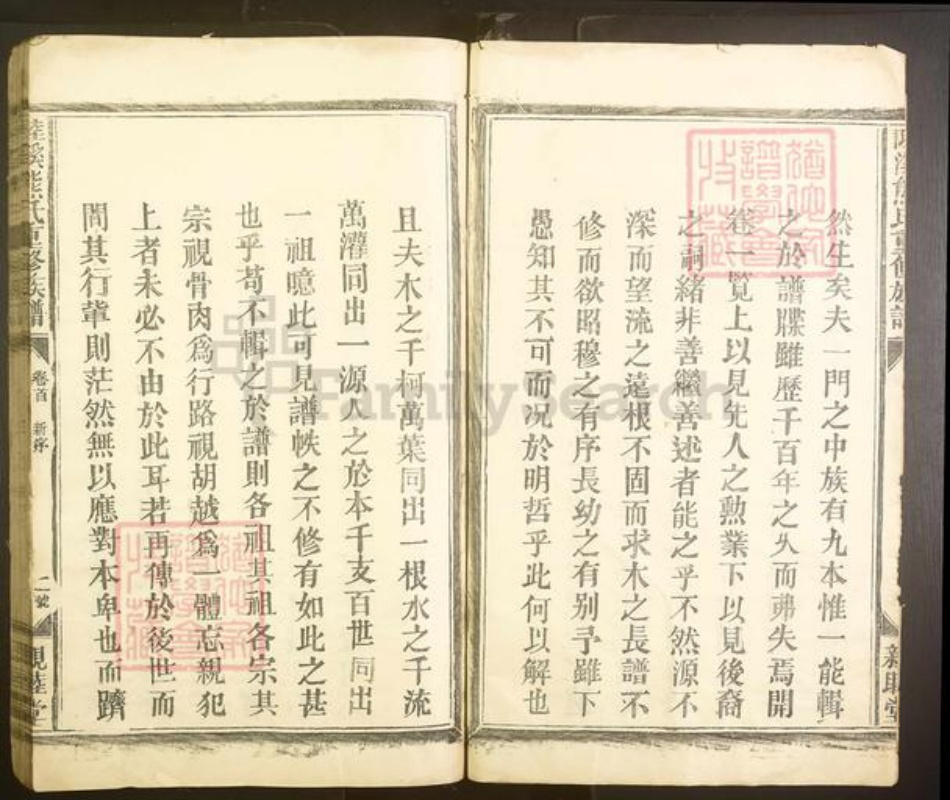 然生矣夫一門之中族有九本惟一能輯
之於譜牒雖歷千百年之久而弗失焉開
卷一覽上以見先人之勲業下以見後裔
之詞緒非善繼善述者能之乎不然源不
深而望流之遠根不固而求木之長譜不
修而欲昭穆之有序長幼之有别予雖下
愚知其不可而况於明哲乎此何以解也
且夫木之千柯萬葉同出一根水之千流
萬灌同出一源人之於本千支百世同出
一祖噫此可見譜帙之不修有如此之甚
也乎苟不輯之於譜則各祖其祖各宗其
宗視骨肉爲行路視胡越爲一體忘親犯
上者未必不由於此耳若再傳於後世而
問其行軰則茫然無以應對本卑也而躋
熊氏重修族譜
卷首 新序
二號
親睦堂
FamilySearch